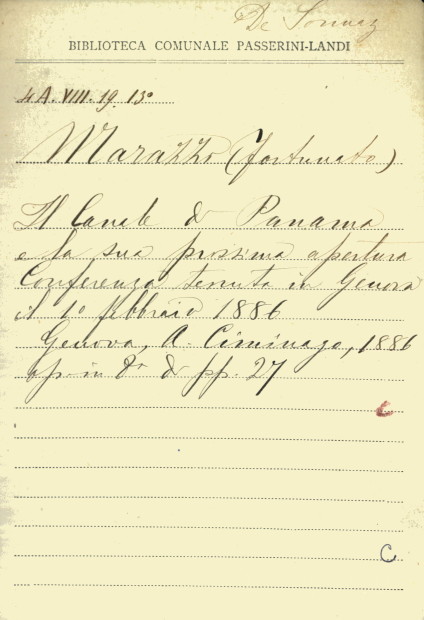 De
BIBLIOTECA COMUNALE PASSERINI-LANDI
4A.VIII.19.13°
Marazzo (Fortunato)
Il Canale di Panama
e la sua prossima apertura
Conferenza tenuta in Genova
il 1° febbraio 1886
Genova, A. Ciminago, 1886
op. in 8° di pp. 27
C
C